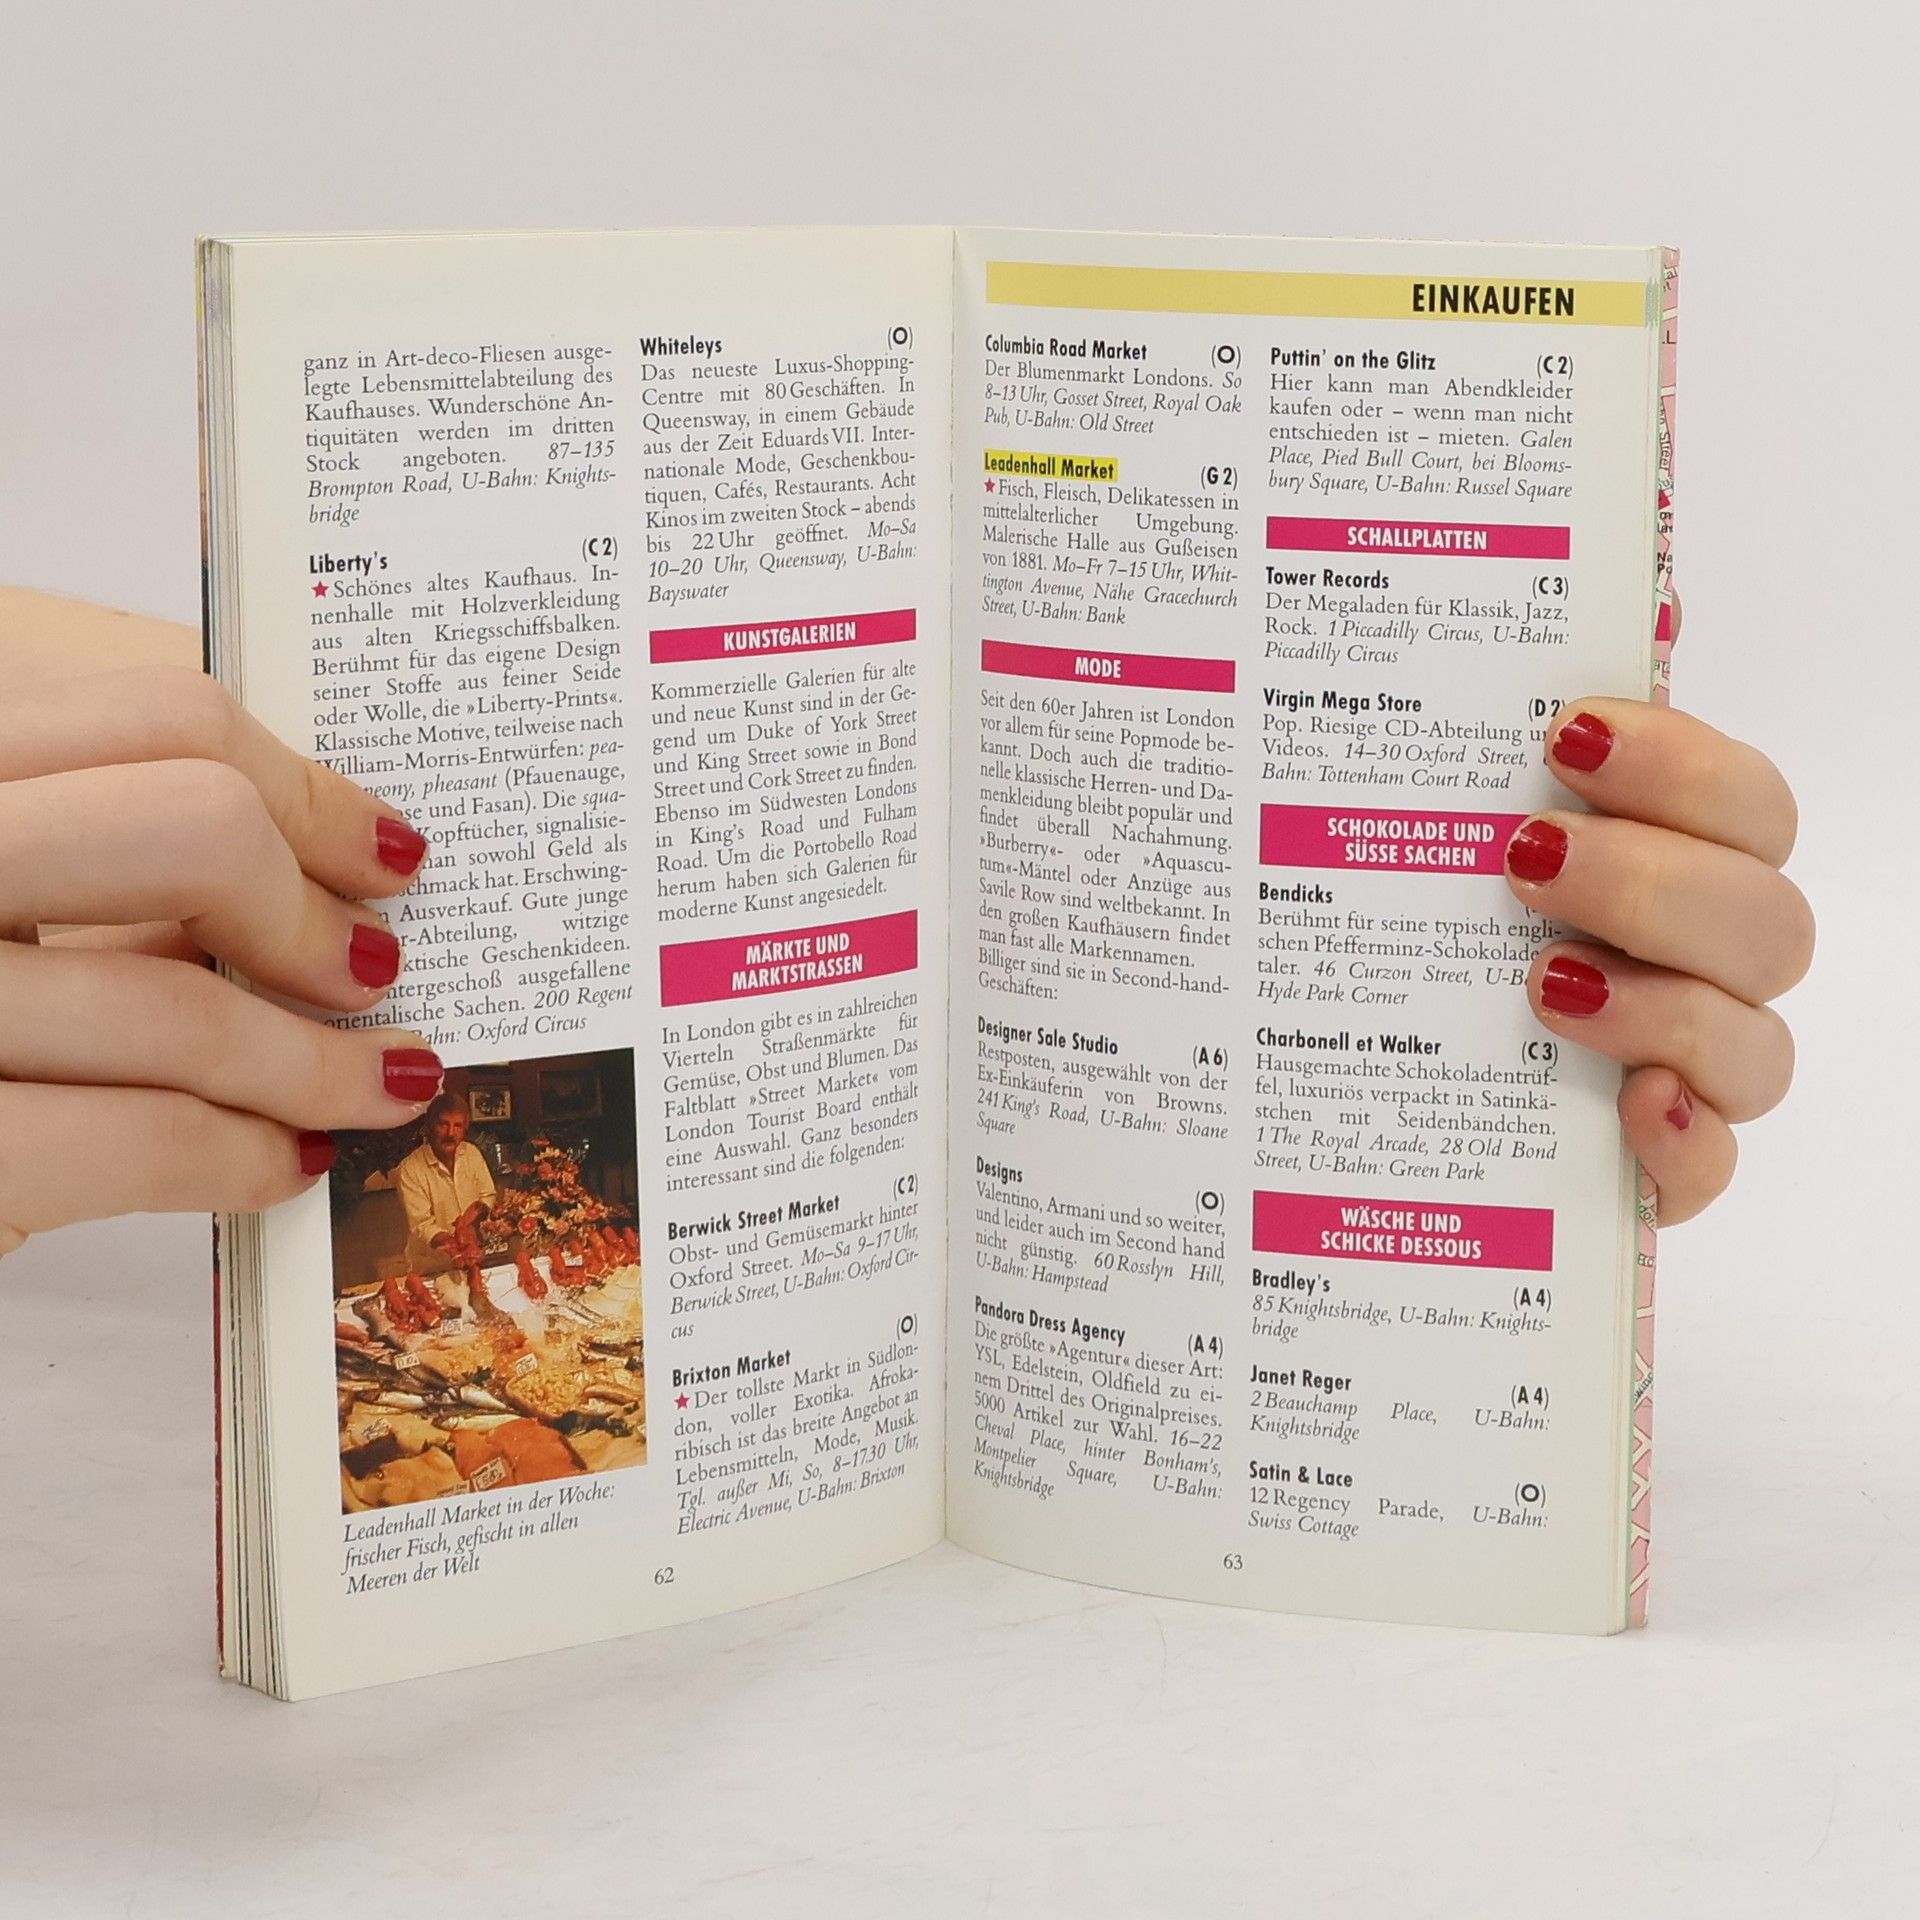 ganz in Art-deco-Fliesen ausge-
legte Lebensmittelabteilung des
Kaufhauses. Wunderschöne An-
tiquitäten werden im dritten
Stock angeboten. 87–135
Brompton Road, U-Bahn: Knights-
bridge
Liberty's (C 2)
★ Schönes altes Kaufhaus. In-
nenhalle mit Holzverkleidung
aus alten Kriegsschiffsbalken.
Berühmt für das eigene Design
seiner Stoffe aus feiner Seide
oder Wolle, die »Liberty-Prints«.
Klassische Motive, teilweise nach
William-Morris-Entwürfen: pea-
peony, pheasant (Pfauenauge,
und Fasan). Die squa-
Kopftücher, signalisie-
man sowohl Geld als
hat. Erschwing-
Ausverkauf. Gute junge
-Abteilung, witzige
Geschenkideen.
ausgefallene
orientalische Sachen. 200 Regent
Oxford Circus
Leadenhall Market in der Woche:
frischer Fisch, gefischt in allen
Meeren der Welt
Whiteleys (O)
Das neueste Luxus-Shopping-
Centre mit 80 Geschäften. In
Queensway, in einem Gebäude
aus der Zeit Eduards VII. Inter-
nationale Mode, Geschenkbou-
tiquen, Cafés, Restaurants. Acht
Kinos im zweiten Stock – abends
bis 22 Uhr geöffnet. Mo–Sa
10–20 Uhr, Queensway, U-Bahn:
Bayswater
KUNSTGALERIEN
Kommerzielle Galerien für alte
und neue Kunst sind in der Ge-
gend um Duke of York Street
und King Street sowie in Bond
Street und Cork Street zu finden.
Ebenso im Südwesten Londons
in King's Road und Fulham
Road. Um die Portobello Road
herum haben sich Galerien für
moderne Kunst angesiedelt.
MÄRKTE UND
MARKTSTRASSEN
In London gibt es in zahlreichen
Vierteln Straßenmärkte für
Gemüse, Obst und Blumen. Das
Faltblatt »Street Market« vom
London Tourist Board enthält
eine Auswahl. Ganz besonders
interessant sind die folgenden:
Berwick Street Market (C 2)
Obst- und Gemüsemarkt hinter
Oxford Street. Mo–Sa 9–17 Uhr,
Berwick Street, U-Bahn: Oxford Cir-
cus
Brixton Market (O)
★ Der tollste Markt in Südlon-
don, voller Exotika. Afroka-
ribisch ist das breite Angebot an
Lebensmitteln, Mode, Musik.
Tgl. außer Mi, So, 8–1730 Uhr,
Electric Avenue, U-Bahn: Brixton
62
EINKAUFEN
Columbia Road Market (O)
Der Blumenmarkt Londons. So
8–13 Uhr, Gosset Street, Royal Oak
Pub, U-Bahn: Old Street
Leadenhall Market (G 2)
★ Fisch, Fleisch, Delikatessen in
mittelalterlicher Umgebung.
Malerische Halle aus Gußeisen
von 1881. Mo–Fr 7–15 Uhr, Whit-
tington Avenue, Nähe Gracechurch
Street, U-Bahn: Bank
MODE
Seit den 60er Jahren ist London
vor allem für seine Popmode be-
kannt. Doch auch die traditio-
nelle klassische Herren- und Da-
menkleidung bleibt populär und
findet überall Nachahmung.
»Burberry«- oder »Aquascu-
tum«-Mäntel oder Anzüge aus
Savile Row sind weltbekannt. In
den großen Kaufhäusern findet
man fast alle Markennamen.
Billiger sind sie in Second-hand-
Geschäften:
Designer Sale Studio (A 6)
Restposten, ausgewählt von der
Ex-Einkäuferin von Browns.
241 King's Road, U-Bahn: Sloane
Square
Designs (O)
Valentino, Armani und so weiter,
und leider auch im Second hand
nicht günstig. 60 Rosslyn Hill,
U-Bahn: Hampstead
Pandora Dress Agency (A 4)
Die größte »Agentur« dieser Art:
YSL, Edelstein, Oldfield zu ei-
nem Drittel des Originalpreises.
5000 Artikel zur Wahl. 16–22
Cheval Place, hinter Bonham's,
Montpelier Square, U-Bahn:
Knightsbridge
Puttin' on the Glitz (C 2)
Hier kann man Abendkleider
kaufen oder – wenn man nicht
entschieden ist – mieten. Galen
Place, Pied Bull Court, bei Blooms-
bury Square, U-Bahn: Russel Square
SCHALLPLATTEN
Tower Records (C 3)
Der Megaladen für Klassik, Jazz,
Rock. 1 Piccadilly Circus, U-Bahn:
Piccadilly Circus
Virgin Mega Store (D 2)
Pop. Riesige CD-Abteilung
Videos. 14–30 Oxford Street,
Bahn: Tottenham Court Road
SCHOKOLADE UND
SÜSSE SACHEN
Bendicks
Berühmt für seine typisch engli-
schen Pfefferminz-Schokolade
taler. 46 Curzon Street,
Hyde Park Corner
Charbonell et Walker (C 3)
Hausgemachte Schokoladentrüf-
fel, luxuriös verpackt in Satinkä-
stchen mit Seidenbändchen.
1 The Royal Arcade, 28 Old Bond
Street, U-Bahn: Green Park
WÄSCHE UND
SCHICKE DESSOUS
Bradley's (A 4)
85 Knightsbridge, U-Bahn: Knights-
bridge
Janet Reger (A 4)
2 Beauchamp Place, U-Bahn:
Knightsbridge
Satin & Lace (O)
12 Regency Parade, U-Bahn:
Swiss Cottage
63